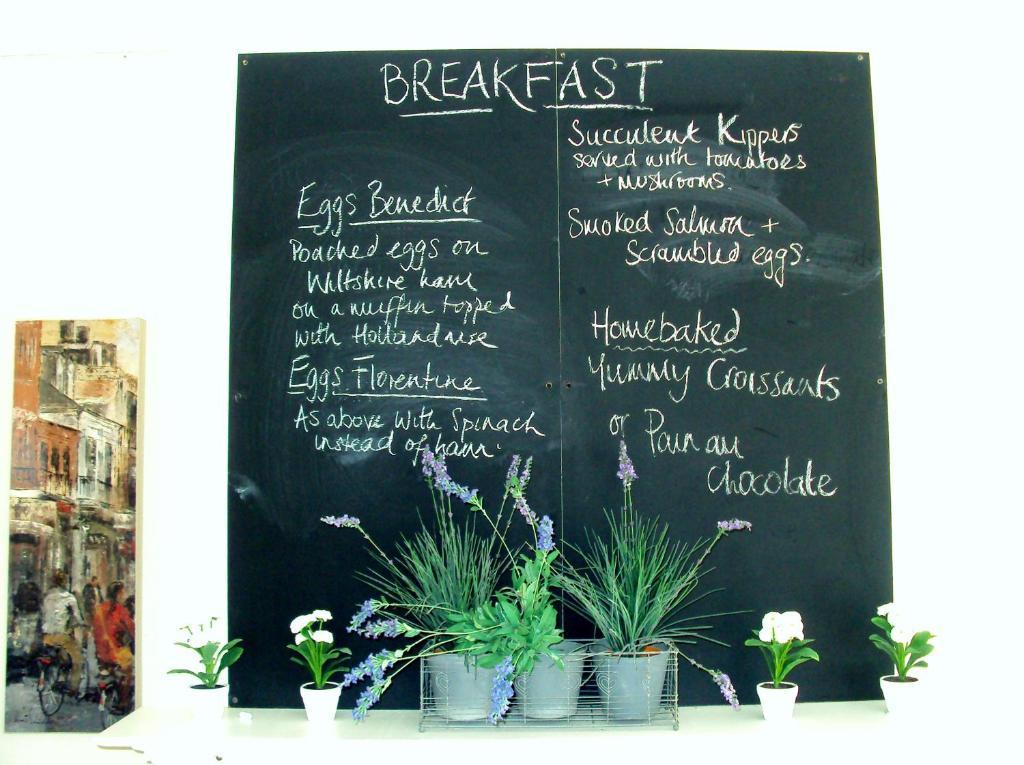 BREAKFAST
Eggs Benedict
Poached eggs on
Wiltshire ham
on a muffin topped
with Hollandaise
Eggs Florentine
As above with Spinach
instead of ham.
Succulent Kippers
served with tomatoes
+ Mushrooms.
Smoked Salmon +
Scrambled eggs.
Homebaked
Yummy Croissants
or Pain au
Chocolate